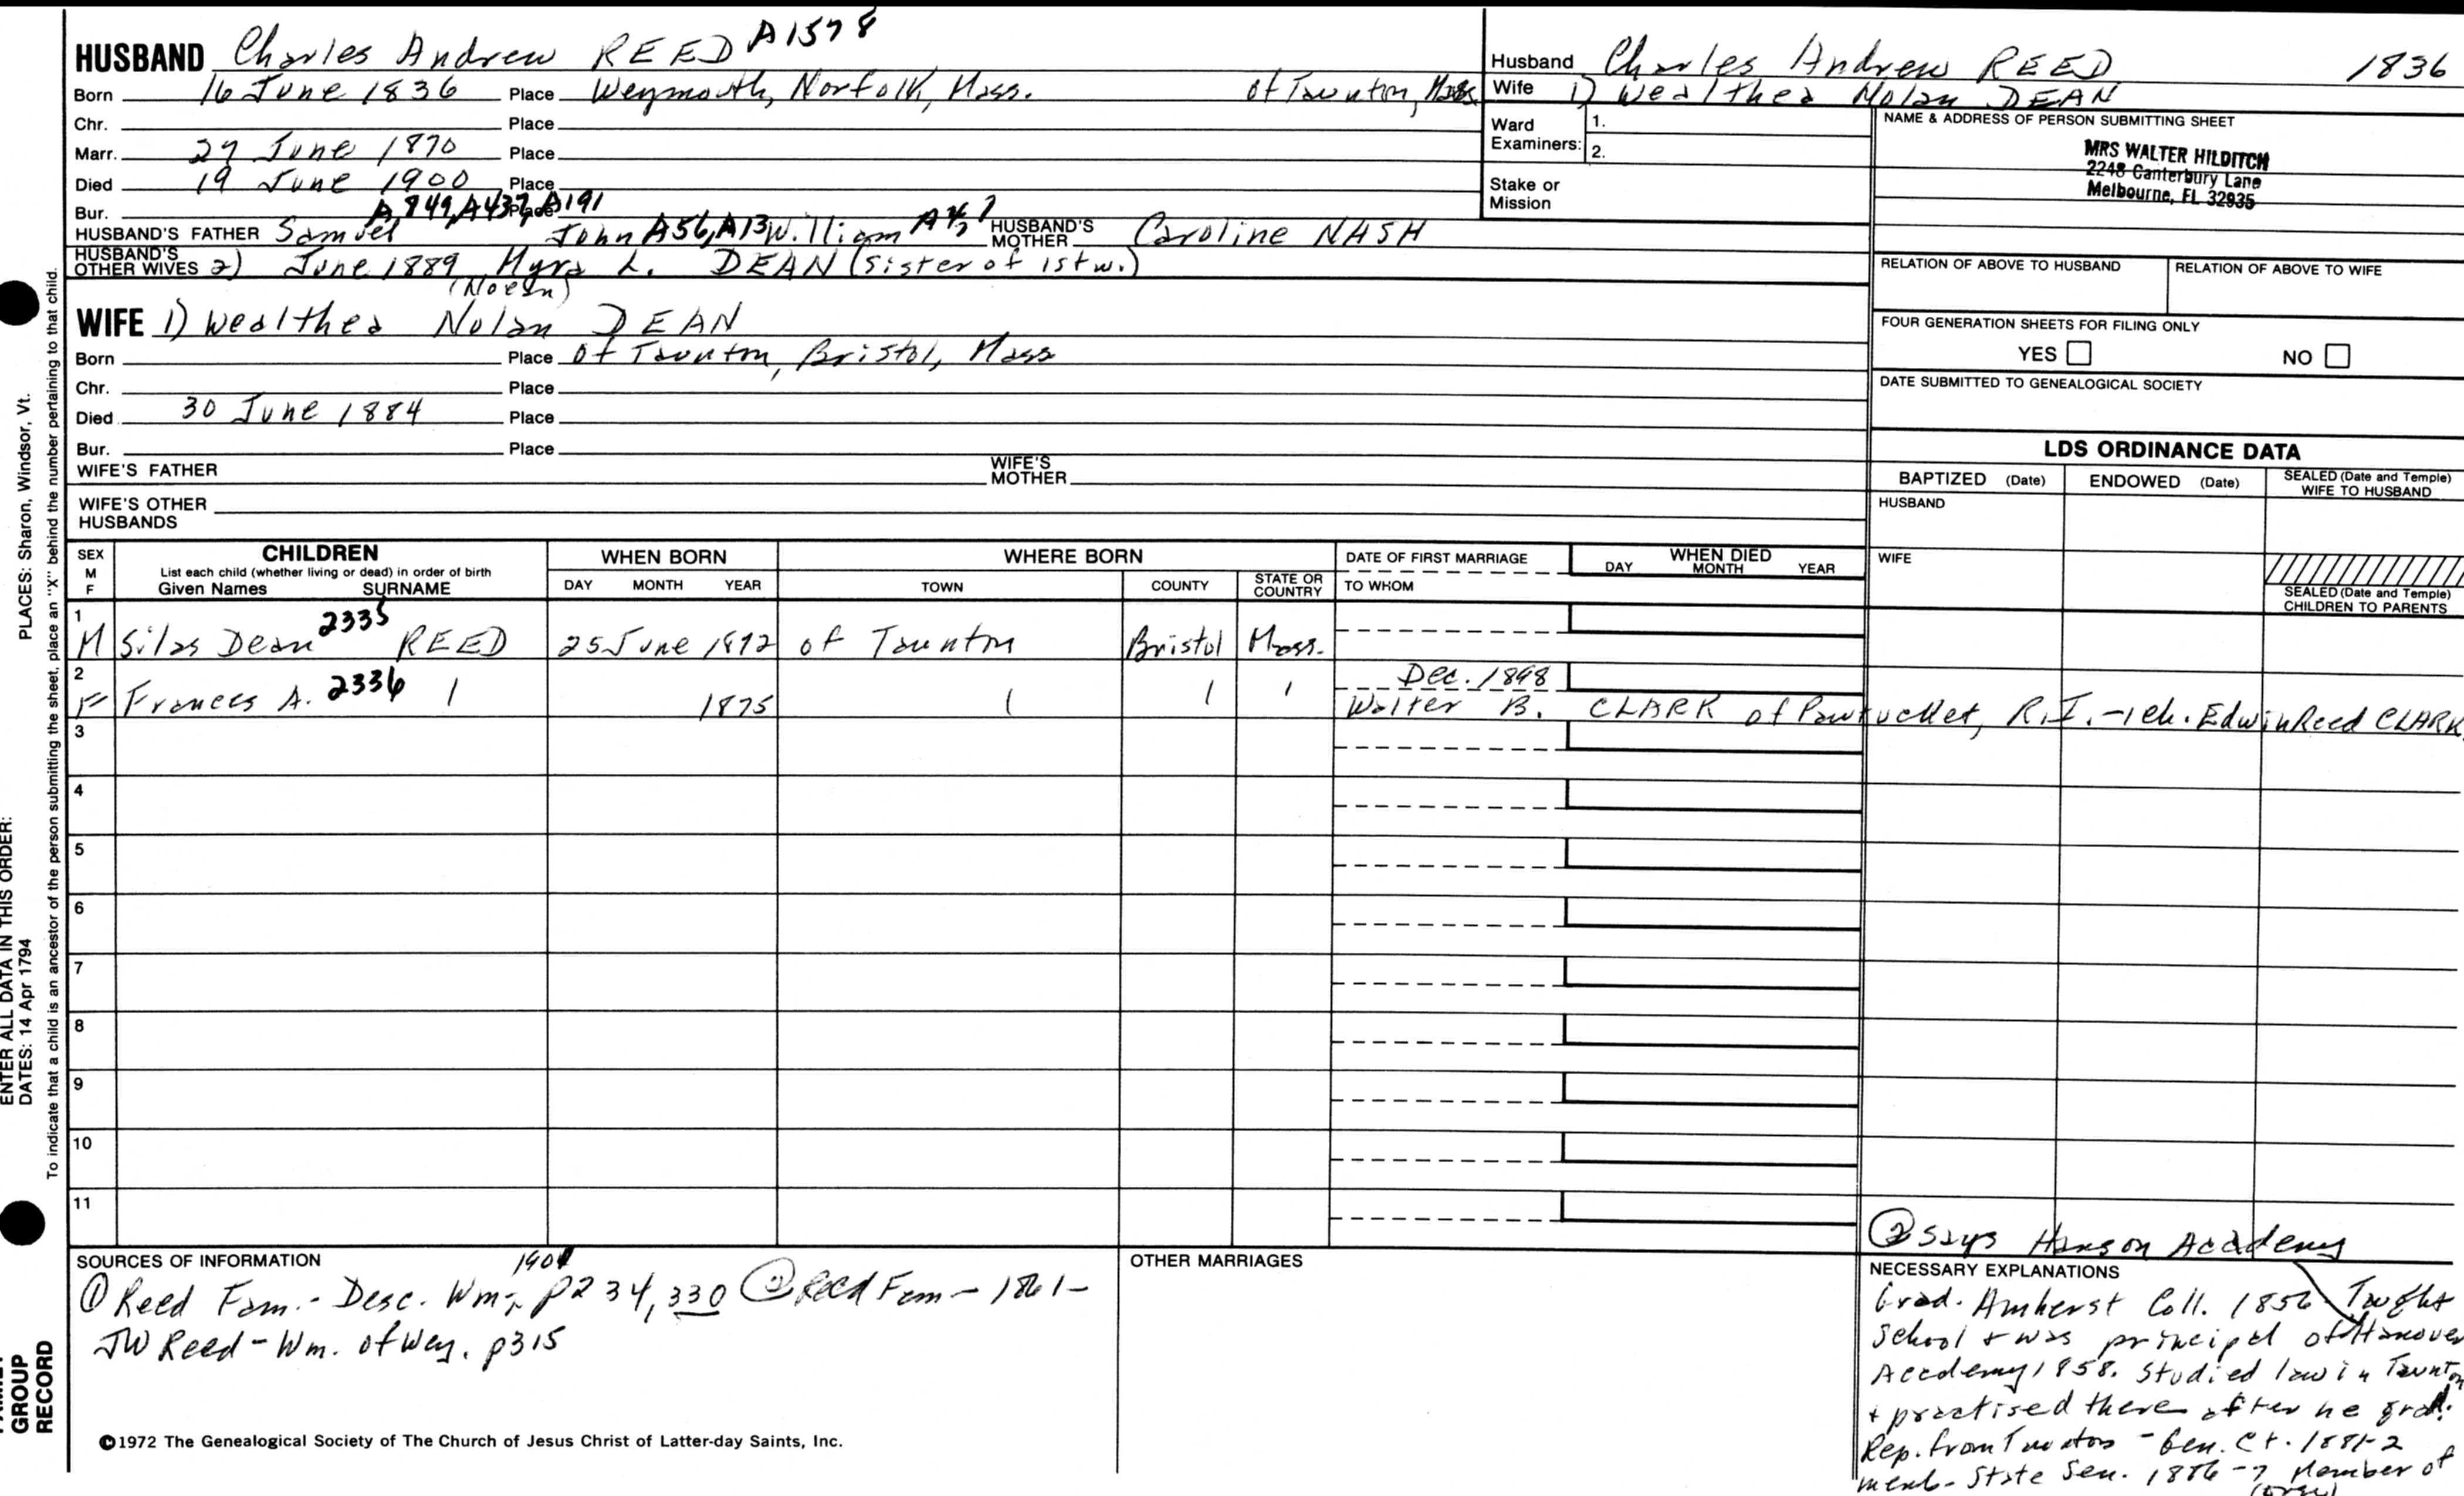 HUSBAND Charles Andrew REED A1578
Born 16 June 1836 Place Weymouth, Norfolk, Mass. of Taunton, Mass.
Chr. Place
Marr. 27 June 1870 Place
Died 19 June 1900 Place
Bur. Place A849, A437, A191
HUSBAND'S FATHER Samuel John A56, A13 William HUSBAND'S MOTHER Caroline NASH
HUSBAND'S OTHER WIVES 2) June 1889 Myra L. DEAN (sister of 1st w.)
(Noeln)
WIFE 1) Wealthea Nolan DEAN
Born Place of Taunton, Bristol, Mass
Chr. Place
Died 30 June 1884 Place
Bur. Place
WIFE'S FATHER WIFE'S MOTHER
WIFE'S OTHER HUSBANDS
Husband Charles Andrew REED 1836
Wife 1) Wealthea Nolan DEAN
Ward Examiners: 1.
2.
Stake or Mission
NAME & ADDRESS OF PERSON SUBMITTING SHEET
MRS WALTER HILDITCH
2248 Canterbury Lane
Melbourne, FL 32935
RELATION OF ABOVE TO HUSBAND RELATION OF ABOVE TO WIFE
FOUR GENERATION SHEETS FOR FILING ONLY
YES NO
DATE SUBMITTED TO GENEALOGICAL SOCIETY
LDS ORDINANCE DATA
BAPTIZED (Date) ENDOWED (Date) SEALED (Date and Temple) WIFE TO HUSBAND
HUSBAND
WIFE
SEALED (Date and Temple) CHILDREN TO PARENTS
SEX M F CHILDREN WHEN BORN WHERE BORN DATE OF FIRST MARRIAGE WHEN DIED
List each child (whether living or dead) in order of birth
Given Names SURNAME DAY MONTH YEAR TOWN COUNTY STATE OR COUNTRY TO WHOM DAY MONTH YEAR
1 M Silas Dean 2335 REED 25 June 1872 of Taunton Bristol Mass.
2 F Frances A. 2336 1 1875 1 1 1 Dec. 1898
Walter B. CLARK of Pawtucket, R.I. - 1 ch. Edwin Reed CLARK
3
4
5
6
7
8
9
10
11
SOURCES OF INFORMATION
1901
① Reed Fam. - Desc. Wm., p234, 330 ② Reed Fam - 1861 -
JW Reed - Wm. of Wey. p315
©1972 The Genealogical Society of The Church of Jesus Christ of Latter-day Saints, Inc.
OTHER MARRIAGES
② says Hanson Academy
NECESSARY EXPLANATIONS
Grad. Amherst Coll. 1856 Taught
school & was principal of Hanover
Academy 1858. Studied law in Taunton
& practised there after he grad.
Rep. from Taunton - Gen. Ct. 1881-2
memb. State Sen. 1886-7 Member of
(over)
PLACES: Sharon, Windsor, Vt.
ENTER ALL DATA IN THIS ORDER:
DATES: 14 Apr 1794
To indicate that a child is an ancestor of the person submitting the sheet, place an "X" behind the number pertaining to that child.
FAMILY
GROUP
RECORD